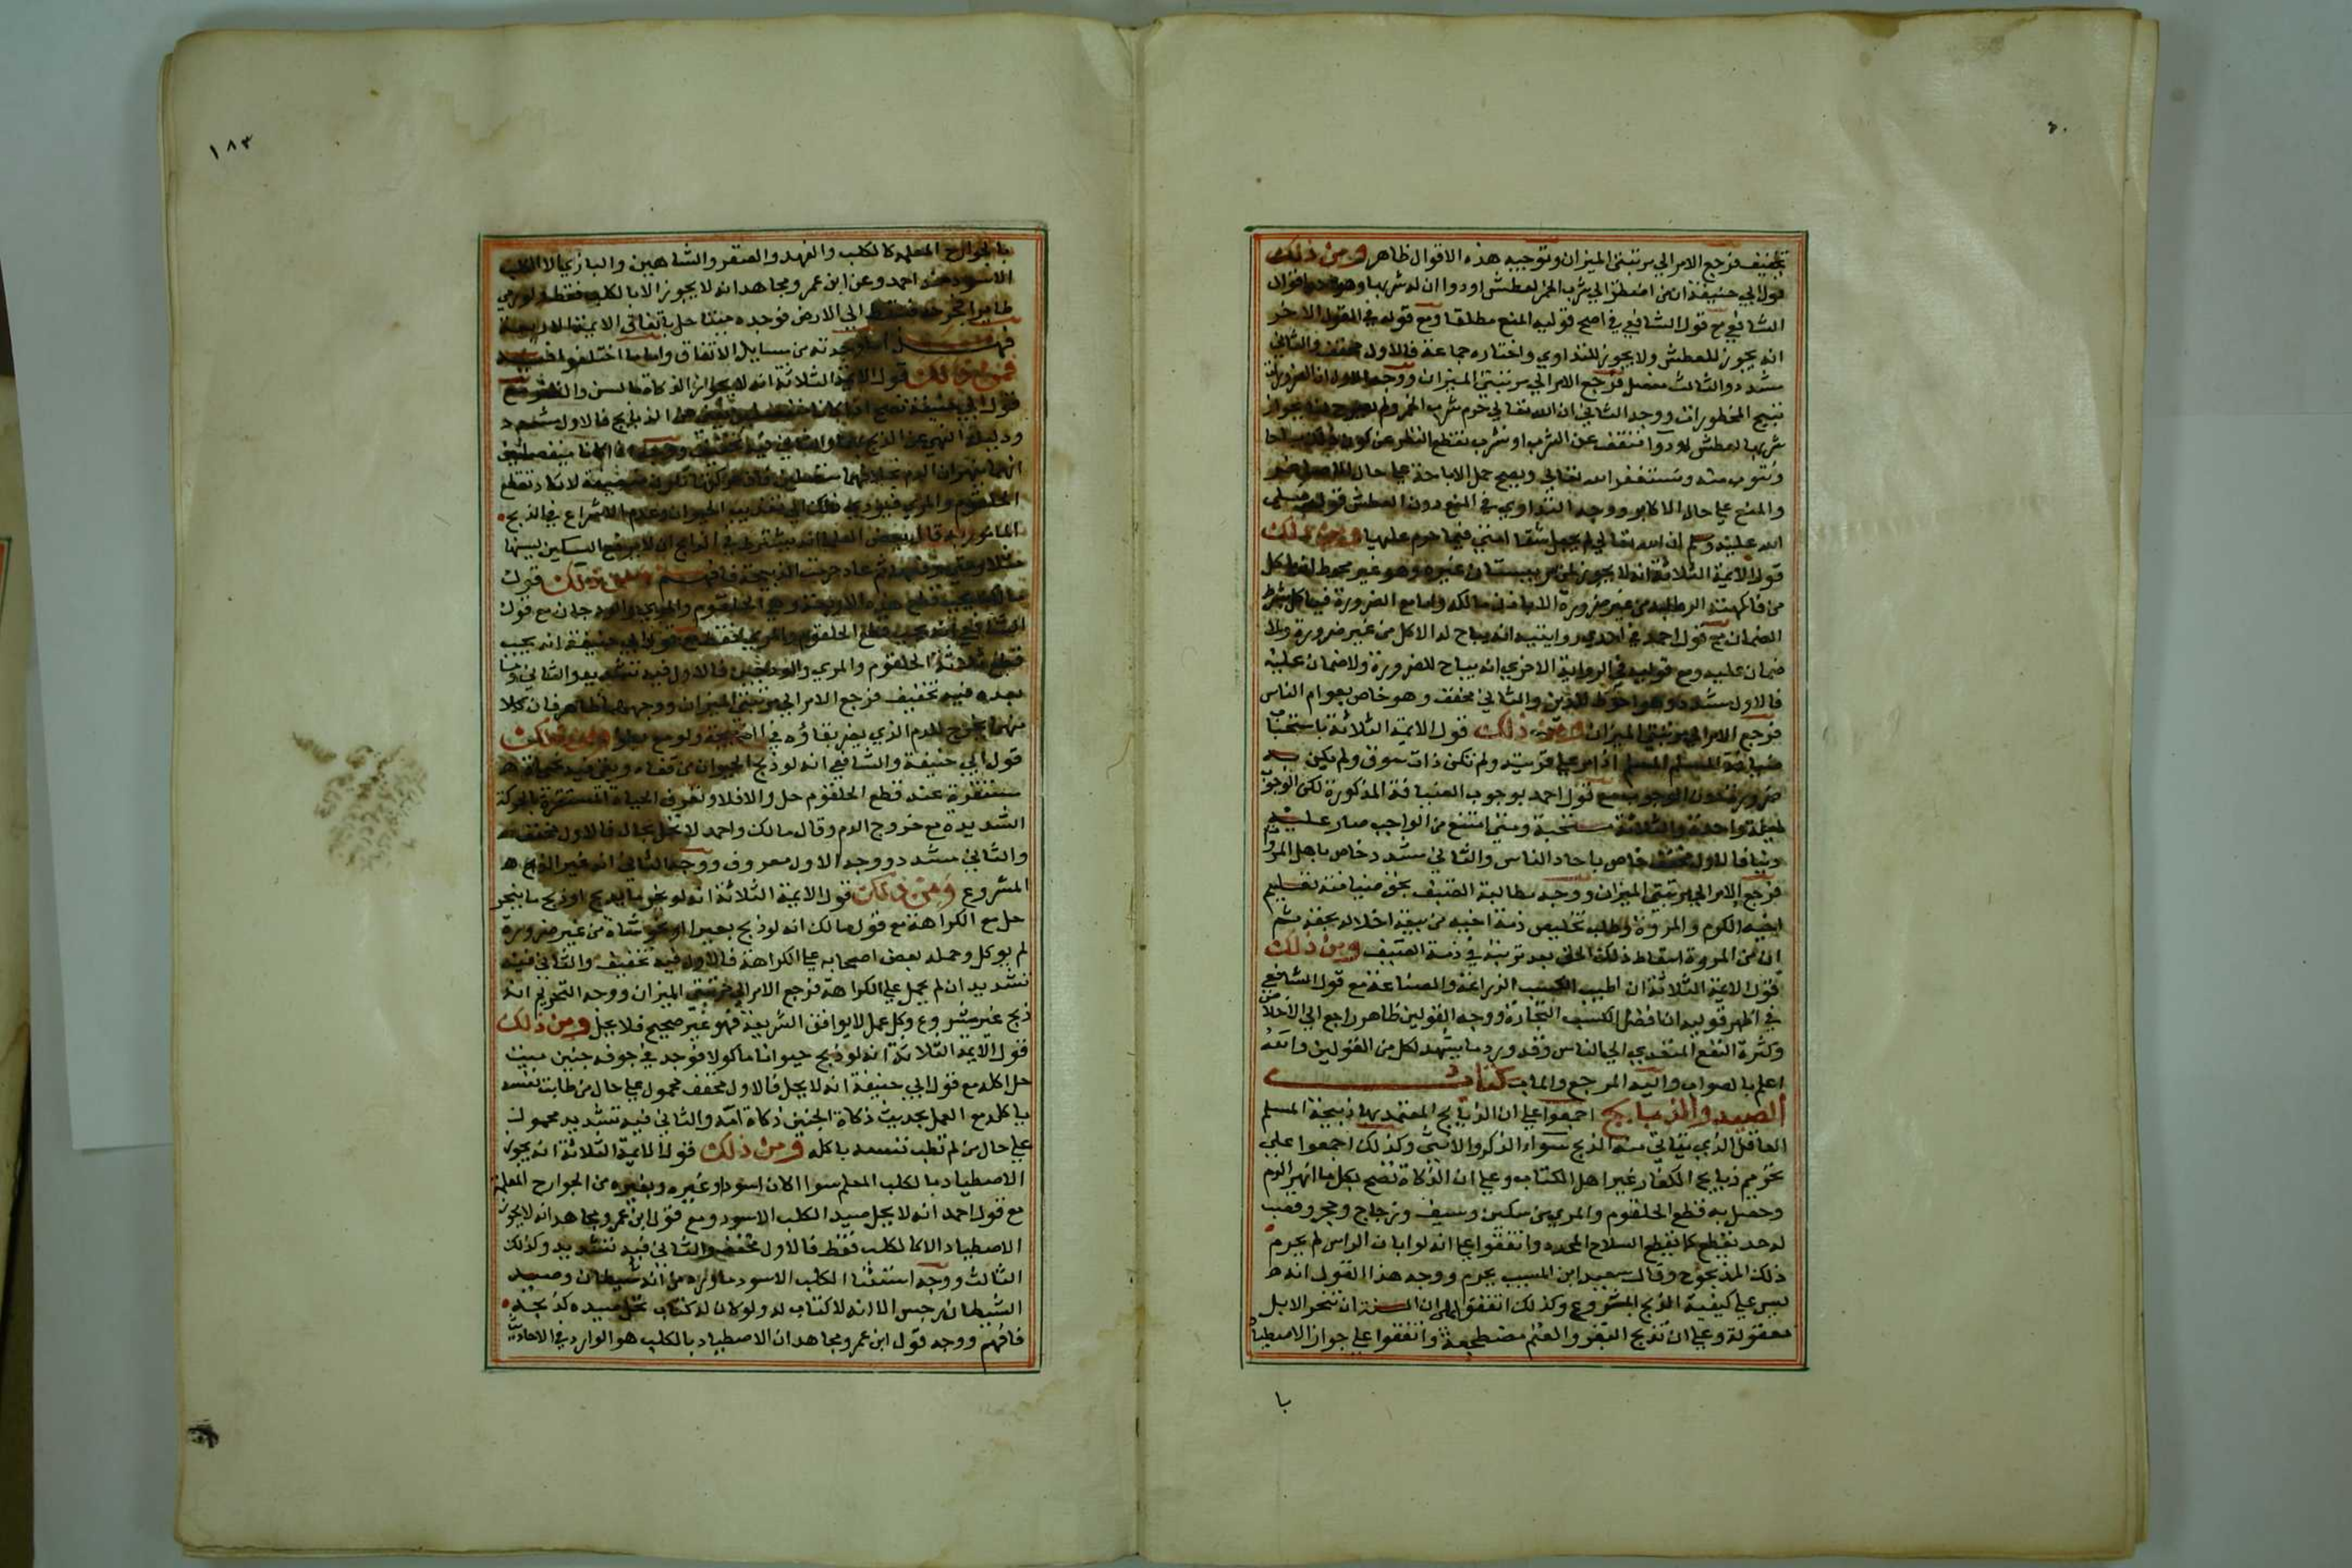 تخفيف فرجع الامر الي مرتبتي الميزان وتوجيه هذه الاقوال ظاهر ومن ذلك
قول ابي حنيفة ان من اضطر الي شرب الخمر لعطش او دوا ان له شربها وهو احد اقوال
الشافعي مع قول الشافعي في اصح قوليه المنع مطلقا ومع قوله في القول الاخر
انه يجوز للعطش ولا يجوز للتداوي واختاره جماعة فالاول مخفف والثاني
مشدد والثالث مفصل فرجع الامر الي مرتبتي الميزان ووجه الاول ان الضرورات
تبيح المحظورات ووجه الثاني ان الله تعالي حرم شرب الخمر ولم يصرح لنا بجواز
شربها لعطش او دوا فنتقف عن الشرب او نشرب بقطع النظر عن كون ذلك مباحا
ونتوب منه ونستغفر الله تعالي ويصح حمل الاباحة علي حال الاصاغر
والمنع علي حال الاكابر ووجه التداوي في المنع دون العطش قوله صلي
الله عليه وسلم ان الله تعالي لم يجعل شفا امتي فيما حرم عليها ومن ذلك
قول الايمة الثلاثة انه لا يجوز لمن مر ببستان غيره وهو غير محوط ان ياكل
من فاكهته الرطبة من غير ضرورة الا باذن مالكه واما مع الضرورة فياكل بشرط
الضمان مع قول احمد في احدي روايتيه انه يباح له الاكل من غير ضرورة ولا
ضمان عليه ومع قوله في الرواية الاخري انه يباح للضرورة ولا ضمان عليه
فالاول مشدد وهو احوط للدين والثاني مخفف وهو خاص بعوام الناس
فرجع الامر الي مرتبتي الميزان ومن ذلك قول الايمة الثلاثة باستحباب
ضيافة المسلم المسلم اذا مر علي قريته ولم تكن ذات سوق ولم يكن به
ضرورة دون الوجوب مع قول احمد بوجوب الضيافة المذكورة لكن الوجوب
ليلة واحدة والثلاثة مستحبة ومتي امتنع من الواجب صار عليه
دينا فالاول مخفف خاص باحاد الناس والثاني مشدد خاص باهل المروة
فرجع الامر الي مرتبتي الميزان ووجه مطالبة الضيف بحق ضيافته تعليم
اخيه الكرم والمروة وطلب تخليص ذمة اخيه من تبعة اخلاله بحقه ثم
ان من المروة اسقاط ذلك الحق بعد ترتبه في ذمة المضيف ومن ذلك
قول الايمة الثلاثة ان اطيب الكسب الزراعة والصناعة مع قول الشافعي
في اظهر قوليه ان افضل الكسب التجارة ووجه القولين ظاهر راجع الي الاخلاص
وكثرة النفع المتعدي الي الناس وقد ورد ما يشهد لكل من القولين والله
اعلم بالصواب واليه المرجع والماب كتاب
الصيد والذبايح اجمعوا علي ان الذبايح المعتمد بها ذبيحة المسلم
العاقل الذي يتاتي منه الذبح سواء الذكر والانثي وكذلك اجمعوا علي
تحريم ذبايح الكفار غير اهل الكتاب وعلي ان الذكاة تصح بكل ما انهر الدم
وحصل به قطع الحلقوم والمري من سكين وسيف وزجاج وحجر وقصب
له حد يقطع كما يقطع السلاح المحدد واتفقوا علي انه لو ابان الراس لم يحرم
ذلك المذبوح وقال سعيد ابن المسيب يحرم ووجه هذا القول انه
ليس علي كيفية الذبح المشروع وكذلك اتفقوا علي ان السنة ان تنحر الابل
معقولة وعلي ان تذبح البقر والغنم مضطجعة واتفقوا علي جواز الاصطياد
با
١٨٣
بالجوارح المعلمة كالكلب والفهد والصقر والشاهين والبازي الا الكلب
الاسود عند احمد وعن ابن عمر ومجاهد انه لا يجوز الا بالكلب فقط ولو رمي
طايرا فجرحه فسقط الي الارض فوجده ميتا حل باتفاق الايمة الاربعة
فهذا ما وجدته من مسايل الاتفاق واما ما اختلفوا فيه
فمن ذلك قول الايمة الثلاثة انه لا يجوز الذكاة بالسن والظفر مع
قول ابي حنيفة تصح اذا كانا منفصلين فالاول مشدد
ودليله النهي عن الذبح بهما والثاني فيه تخفيف ووجهه اذا كانا منفصلين
انهما ينهران الدم بخلافهما متصلين
الحلقوم والمري فيودي ذلك الي تعذيب الحيوان وعدم الاسراع في الذبح
المامور به قال بعض العلما انه يشترط في الذابح ان لا يرفع السكين بينهما
ثم عاد حرمت الذبيحة فافهم ومن ذلك قول
مالك يجب قطع هذه الاربعة وهي الحلقوم والمري والودجان مع قول
الشافعي انه يجب قطع الحلقوم والمري فقط مع قول ابي حنيفة انه يجب
قطع ثلاثة الحلقوم والمري والودجين فالاول فيه تشديد والثاني وما
بعده فيه تخفيف فرجع الامر الي مرتبتي الميزان ووجههما ظاهر فان كلا
منهما يخرج الدم الذي يضر بقاؤه في ومن ذلك
قول ابي حنيفة والشافعي انه لو ذبح الحيوان من قفاه وبقي فيه حياة
مستقرة عند قطع الحلقوم حل والا فلا وتعرف الحياة المستقرة بالحركة
الشديدة مع خروج الدم وقال مالك واحمد لا يحل بحال فالاول مخفف
والثاني مشدد ووجه الاول معروف ووجه الثاني انه غير الذبح
المشروع ومن ذلك قول الايمة الثلاثة انه لو نحر ما يذبح او ذبح ما ينحر
حل مع الكراهة مع قول مالك انه لو ذبح بعيرا او نحر شاة من غير ضرورة
لم يوكل وحمله بعض اصحابه علي الكراهة فالاول فيه تخفيف والثاني فيه
تشديد ان لم يحمل علي الكراهة فرجع الامر الي مرتبتي الميزان ووجه التحريم انه
ذبح غير مشروع وكل عمل لا يوافق الشريعة فهو غير صحيح فلا يحل ومن ذلك
قول الايمة الثلاثة انه لو ذبح حيوانا ماكولا فوجد في جوفه جنين ميت
حل اكله مع قول ابي حنيفة انه لا يحل فالاول مخفف محمول علي حال من طابت نفسه
باكله مع العمل بحديث ذكاة الجنين ذكاة امه والثاني فيه تشديد محمول
علي حال من لم تطب نفسه باكله ومن ذلك قول الايمة الثلاثة انه يجوز
الاصطياد بالكلب المعلم سوا الكان اسود او غيره وبغيره من الجوارح المعلمة
مع قول احمد انه لا يحل صيد الكلب الاسود ومع قول ابن عمر ومجاهد انه لا يجوز
الاصطياد الا بالكلب فقط فالاول مخفف والثاني فيه تشديد وكذلك
الثالث ووجه استثنا الكلب الاسود ما ورد من انه شيطان وصيد
الشيطان رجس لانه لا كتاب له ولو كان له كتاب لحل صيده كذبيحته
فافهم ووجه قول ابن عمر ومجاهد ان الاصطياد بالكلب هو الوارد في الاحاديث